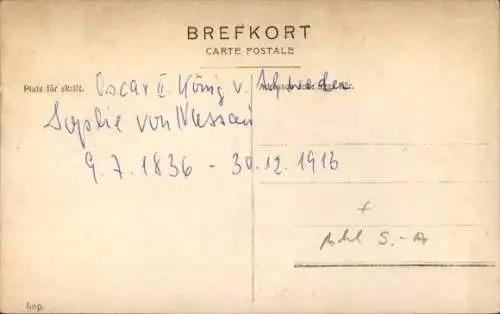 BREFKORT
CARTE POSTALE
Plats för skrift.
Oscar II König v. Schweden
Sophie von Nassau
9.7.1836 - 30.12.1913
+
S.-A
Imp.